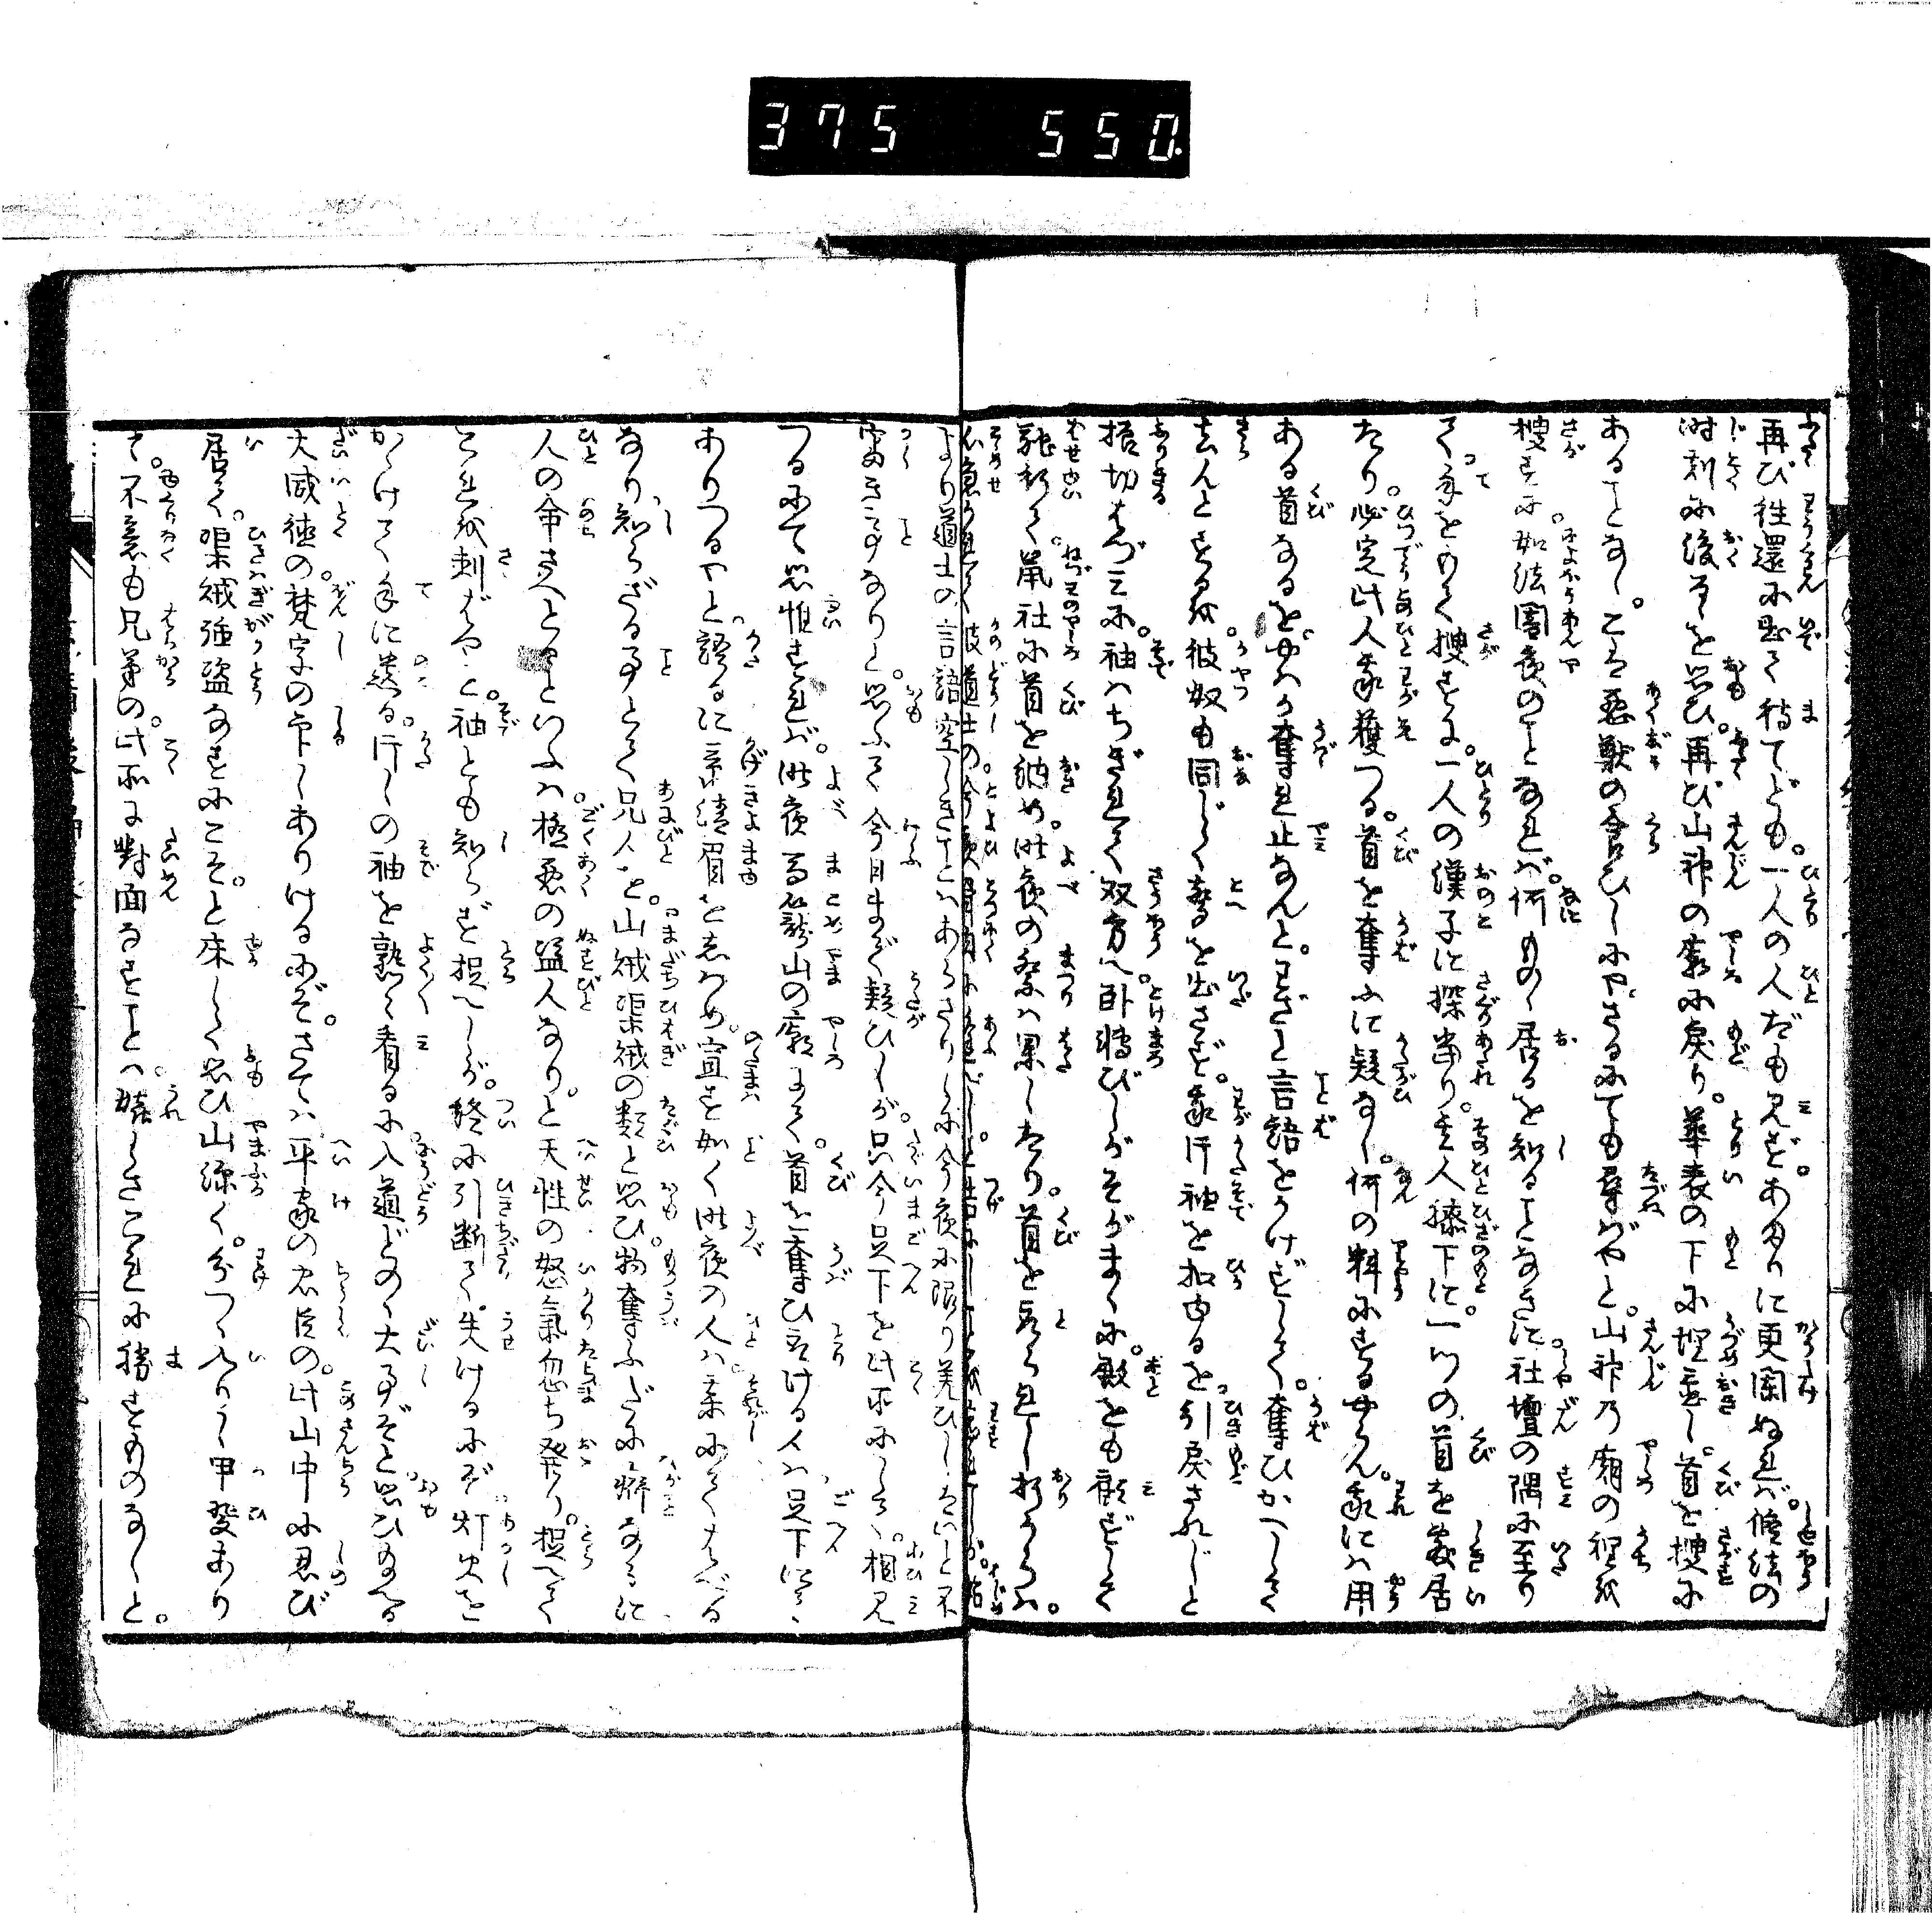 375 550.
再び往還に出て待てども。一人の人だも見ず。あまりに更闌ぬれば。修法の
時刻に後んを思ひ。再び山神の廟に戻り。華表の下に埋置し。首を捜に
あることなし。こは悪獣の含ひしにや。さるにても尋ばやと。山神の廟の裡を
捜すに。如法闇夜のことなれば。何ものゝ居るを知ることなきに。社壇の隅に至り
て手をもて捜すに。一人の漢子に探当り。其人膝下に。一つの首を蔵居
たり。必定此人我獲つる。首を奪ふに疑なし。何の料にするやらん。我には用
ある首なるを。やはか奪れ止なんと。わざと言語をかけずして。奪ひかへして
去んとするを。彼奴も同じく声を出さず。我片袖を扣ゆるを。引戻されじと
振切はづみに。袖はちぎれて双方へ。卧轉びしがそがまゝに。敵とも顧ずして
馳行て。鼠社に首を納め。昨夜の祭は果したり。首を取られし折からは。
より道士の言語空しきことはあらざりしに今夜に限り羗ひしたいと不
審きことなりと。思ふて今日まで疑ひしが。只今足下を此所にして。相見
つるにて思惟すれば。昨夜馬籠山の廟にて。首を奪ひ取ける人は足下にて
ありつるやと。語るに景清眉をしはめ。宣す如く昨夜の人は某にてはべる
なり。知らざる事とて兄人を。山賊渠賊の類と思ひ。物奪ふだに癖なるに
人の命さへとらんといふは。極悪の盗人なり。と天性の怒氣忽ち發り。捉へて
これを刺ばやと。袖とも知らず捉へしが。終に引断て失けるにぞ灯火を
かゝけて手に遺る。片しの袖を熟〻看るに。入道どのゝ大事ぞと。思ひ玉へる
大威徳の。梵字の印しありけるにぞ。さては平家の君臣の。此山中に忍び
居て。渠賊強盗なすにこそ。と床しく思ひ山深く。分つゝ入りし甲斐あり
て。不意も兄弟の。此所に對面なすことは。嬉しさこれに勝すものなしと。